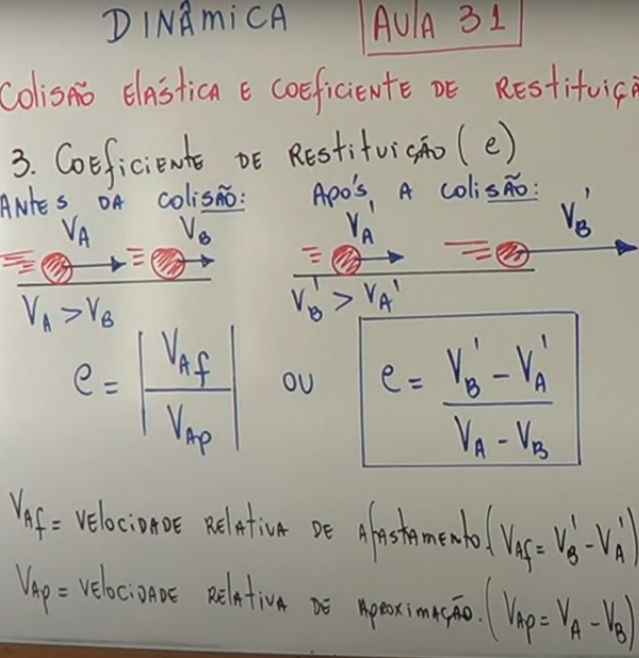 DINÂMICA AULA 31
COLISÃO ELÁSTICA E COEFICIENTE DE RESTITUIÇÃ
3. COEFICIENTE DE RESTITUIÇÃO (e)
ANTES DA COLISÃO: APÓS A COLISÃO:
V_A V_B V_A' V_B'
V_A > V_B V_B' > V_A'
e = |V_Af / V_Ap| OU e = (V_B' - V_A') / (V_A - V_B)
V_Af = VELOCIDADE RELATIVA DE AFASTAMENTO. (V_Af = V_B' - V_A')
V_Ap = VELOCIDADE RELATIVA DE APROXIMAÇÃO. (V_Ap = V_A - V_B)